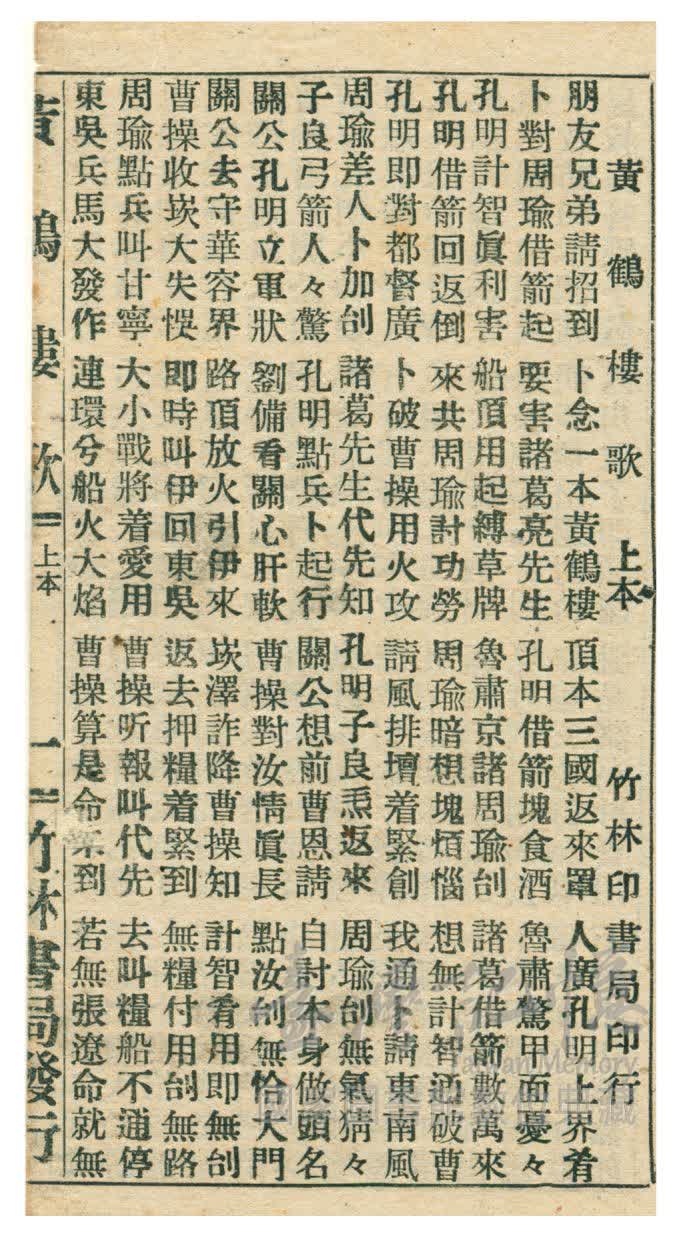 黃鶴樓歌 上本 竹林印書局印行
朋友兄弟請招到 卜念一本黃鶴樓 頂本三國返來罩 人廣孔明上界肴
卜對周瑜借箭起 要害諸葛亮先生 孔明借箭塊食酒 魯肅驚甲面憂々
孔明計智眞利害 船頂用起縛草牌 魯肅京諸周瑜刣 諸葛借箭數萬來
孔明借箭回返倒 來共周瑜討功勞 周瑜暗想塊煩惱 想無計智通破曹
孔明即對都督廣 卜破曹操用火攻 請風排壇着緊創 我通卜請東南風
周瑜差人卜加刣 諸葛先生代先知 孔明子良炁返來 周瑜刣無氣猜々
子良弓箭人々驚 孔明點兵卜起行 關公想前曹恩請 自討本身做頭名
關公孔明立軍狀 劉備看關心肝軟 曹操對汝情眞長 點汝刣無恰大門
關公去守華容界 路頂放火引伊來 崁澤詐降曹操知 計智肴用即無刣
曹操收崁大失悞 即時叫伊回東吳 返去押糧着緊到 無糧付用刣無路
周瑜點兵叫甘寧 大小戰將着愛用 曹操听報叫代先 去叫糧船不通停
東吳兵馬大發作 連環兮船火大焰 曹操算是命未到 若無張遼命就無
黃鶴樓歌 上本 一 竹林書局發行